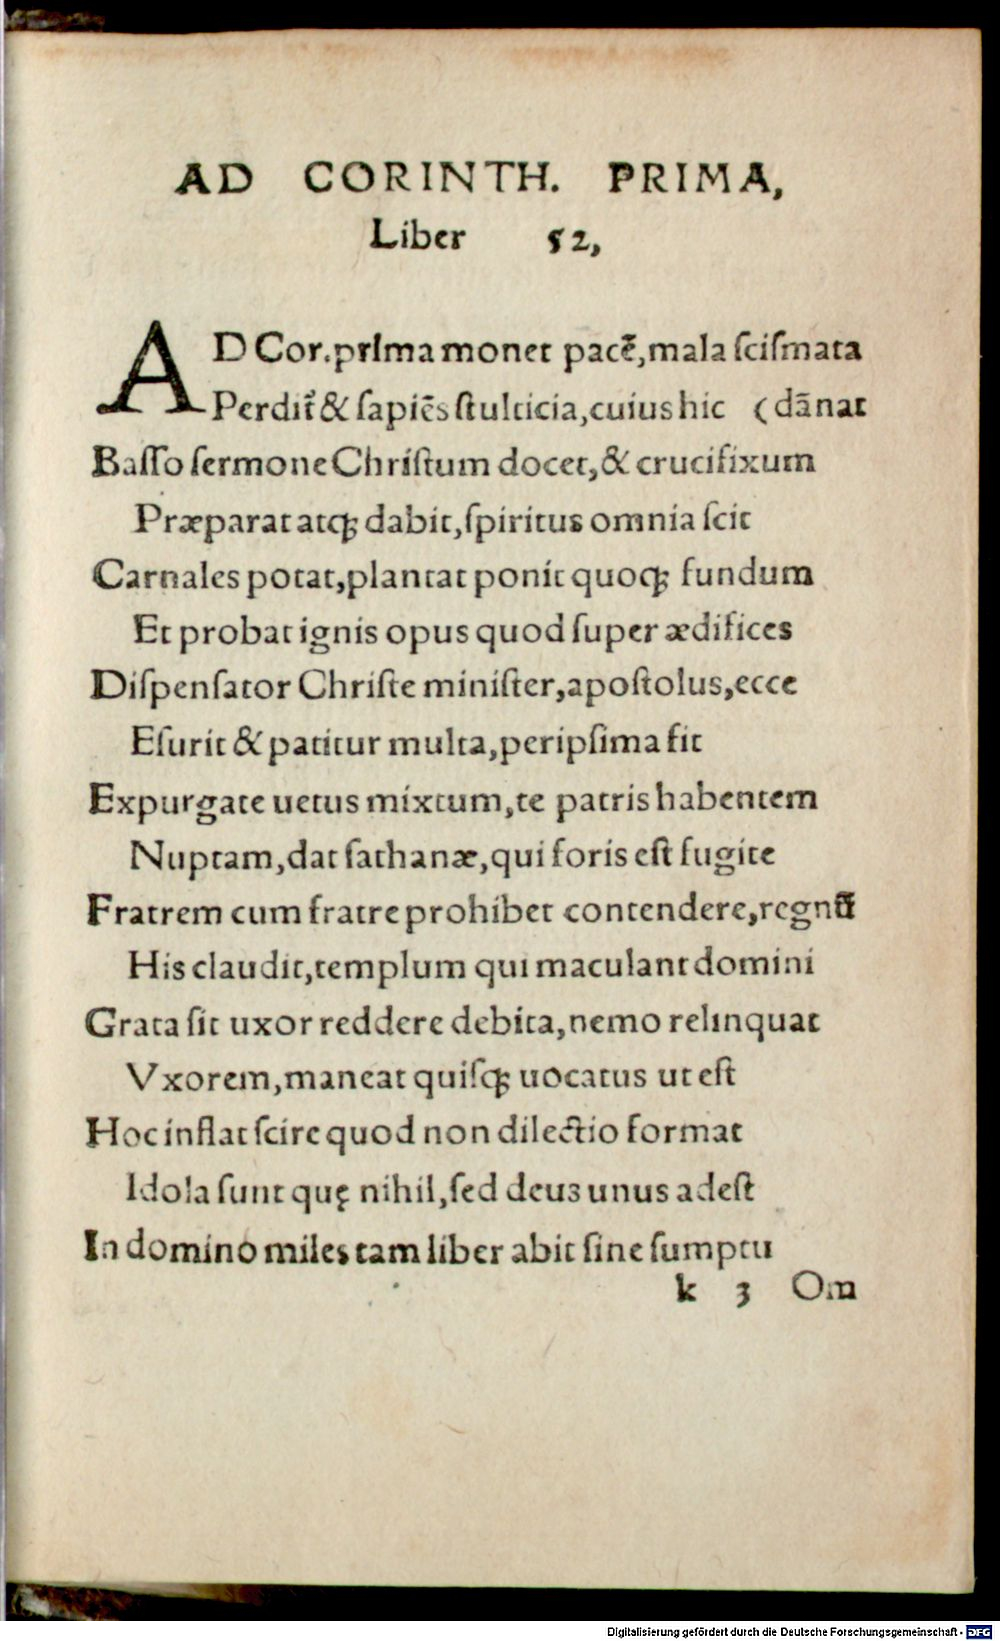 AD CORINTH. PRIMA,
Liber 52,
AD Cor.prima monet pacē,mala ſciſmata
Perdit᷑ & ſapiēs ſtulticia,cuius hic (dānat
Baſſo ſermone Chriſtum docet,& crucifixum
Præparat atqꝫ dabit,ſpiritus omnia ſcit
Carnales potat,plantat ponit quoqꝫ fundum
Et probat ignis opus quod ſuper ædifices
Diſpenſator Chriſte miniſter,apoſtolus,ecce
Eſurit & patitur multa,peripſima fit
Expurgate uetus mixtum,te patris habentem
Nuptam,dat ſathanæ,qui foris eſt fugite
Fratrem cum fratre prohibet contendere,regnū
His claudit,templum qui maculant domini
Grata ſit uxor reddere debita,nemo relinquat
Vxorem,maneat quiſqꝫ uocatus ut eſt
Hoc inflat ſcire quod non dilectio format
Idola ſunt quę nihil,ſed deus unus adeſt
In domino miles tam liber abit ſine ſumptu
k 3 Om
Digitalisierung gefördert durch die Deutsche Forschungsgemeinschaft - DFG